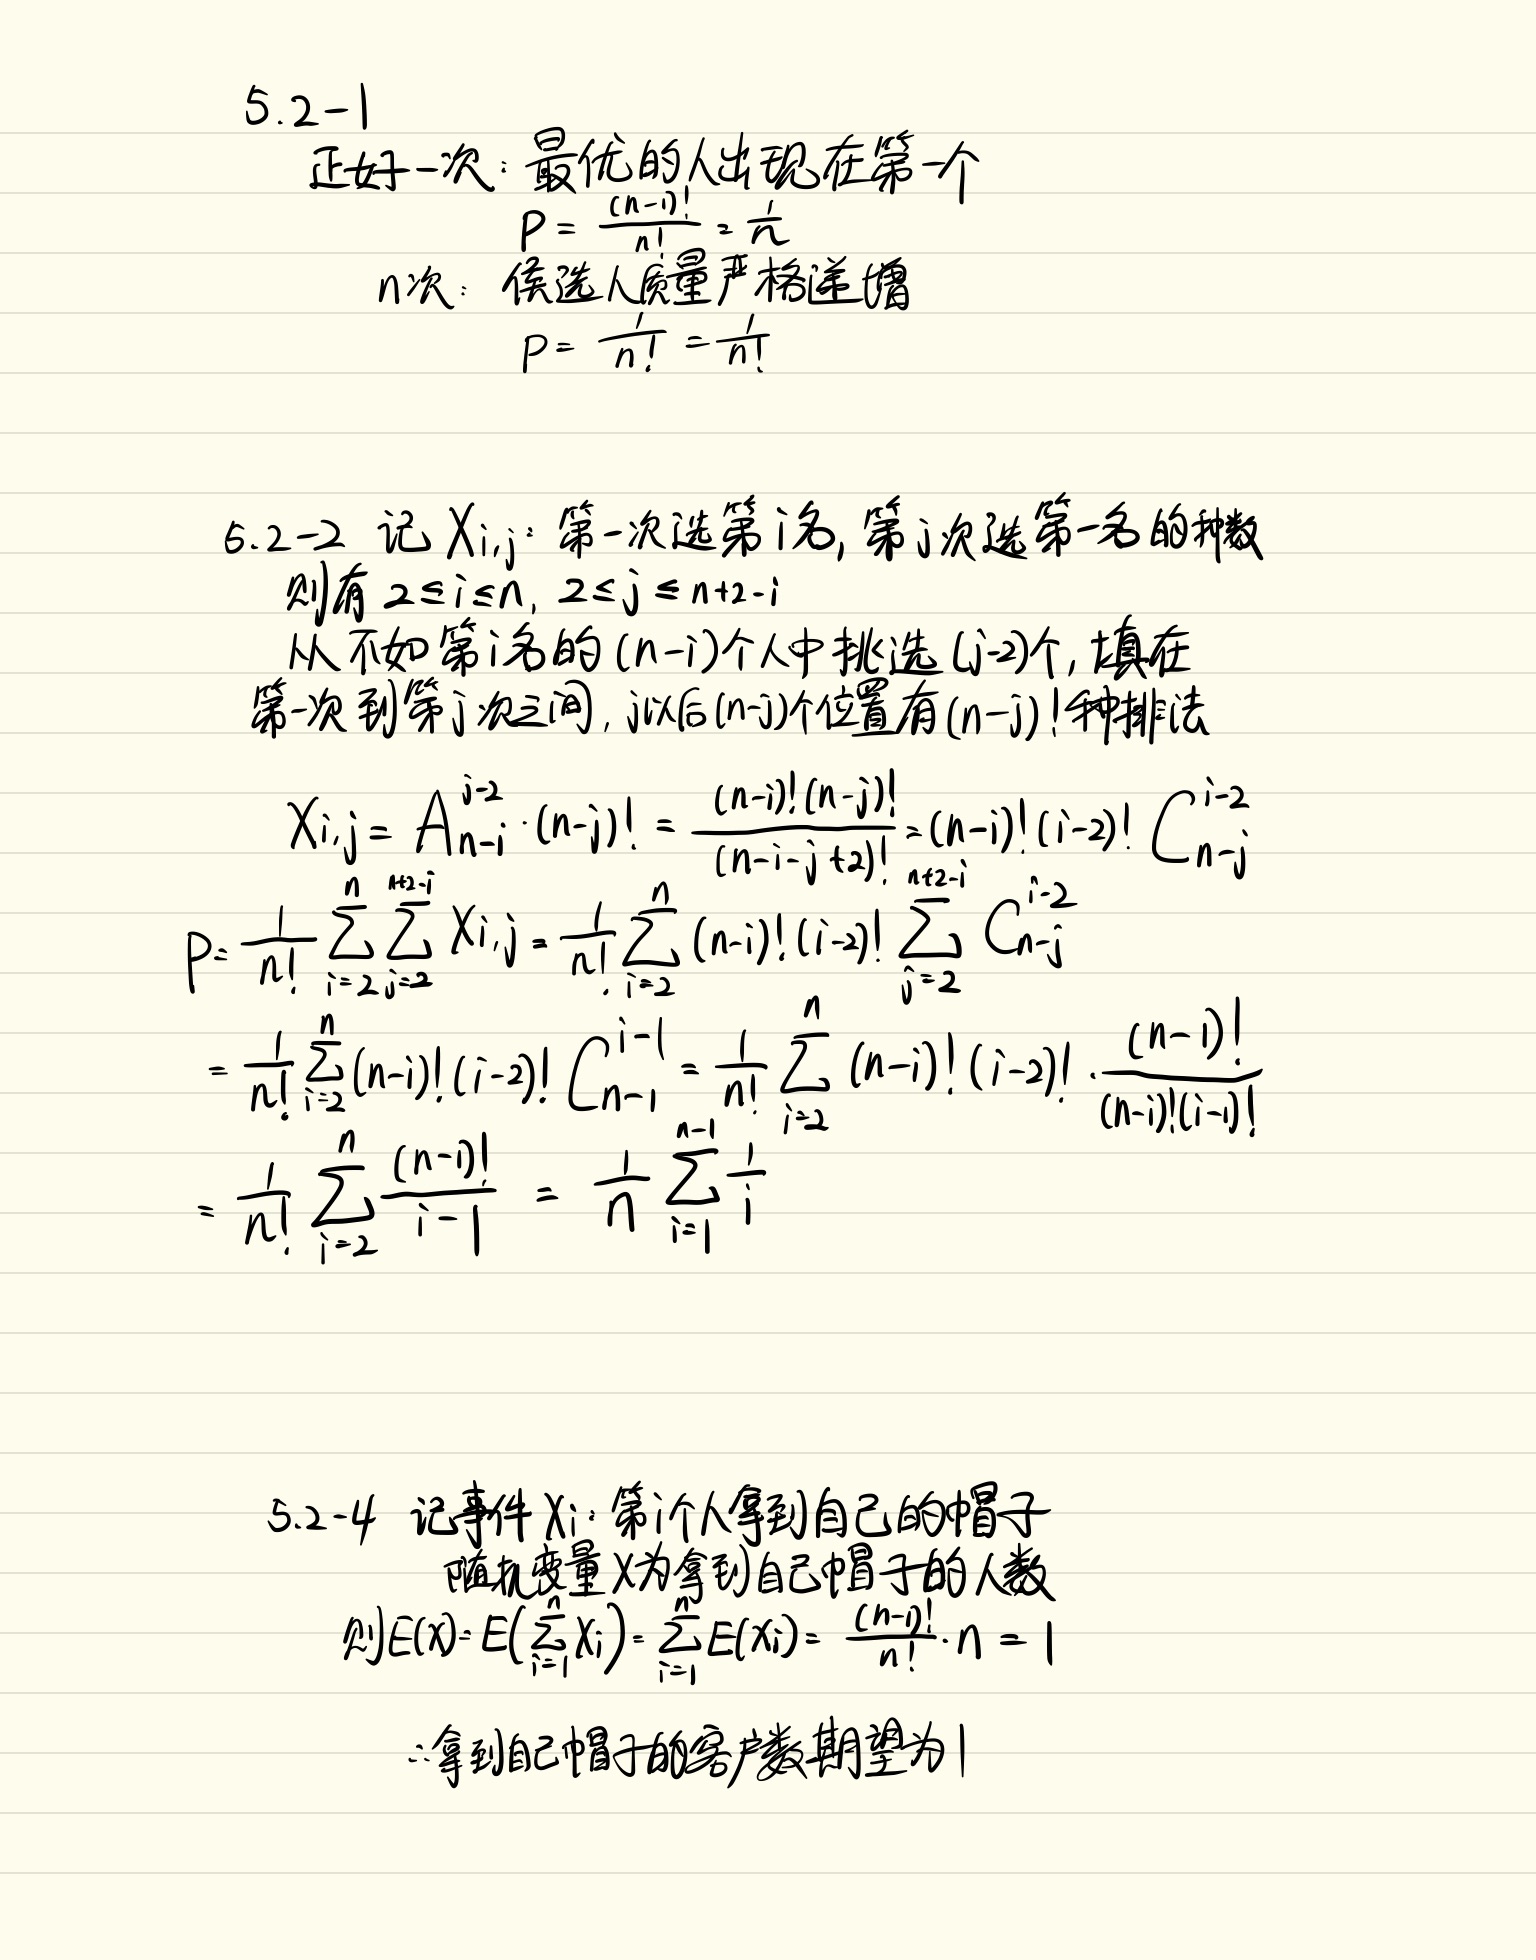 5.2-1
正好一次：最优的人出现在第一个
P = (n-1)!/n! = 1/n
n次：侯选人质量严格递增
P = 1/n! = 1/n!
5.2-2 记 X_{i,j}：第一次选第i名, 第j次选第一名的种数
则有 2≤i≤n, 2≤j≤n+2-i
从不如第i名的(n-i)个人中挑选(j-2)个, 填在
第一次到第j次之间, j以后(n-j)个位置有(n-j)!种排法
X_{i,j} = A_{n-i}^{j-2}·(n-j)! = (n-i)!(n-j)!/(n-i-j+2)! = (n-i)!(i-2)! C_{n-j}^{i-2}
P = 1/n! ∑_{i=2}^{n} ∑_{j=2}^{n+2-i} X_{i,j} = 1/n! ∑_{i=2}^{n} (n-i)!(i-2)! ∑_{j=2}^{n+2-i} C_{n-j}^{i-2}
= 1/n! ∑_{i=2}^{n} (n-i)!(i-2)! C_{n-1}^{i-1} = 1/n! ∑_{i=2}^{n} (n-i)!(i-2)!·(n-1)!/(n-i)!(i-1)!
= 1/n! ∑_{i=2}^{n} (n-1)!/i-1 = 1/n ∑_{i=1}^{n-1} 1/i
5.2-4 记事件Xi：第i个人拿到自己的帽子
随机变量X为拿到自己帽子的人数
则E(X) = E(∑_{i=1}^{n} Xi) = ∑_{i=1}^{n} E(Xi) = (n-1)!/n!·n = 1
∴拿到自己帽子的客户数期望为1